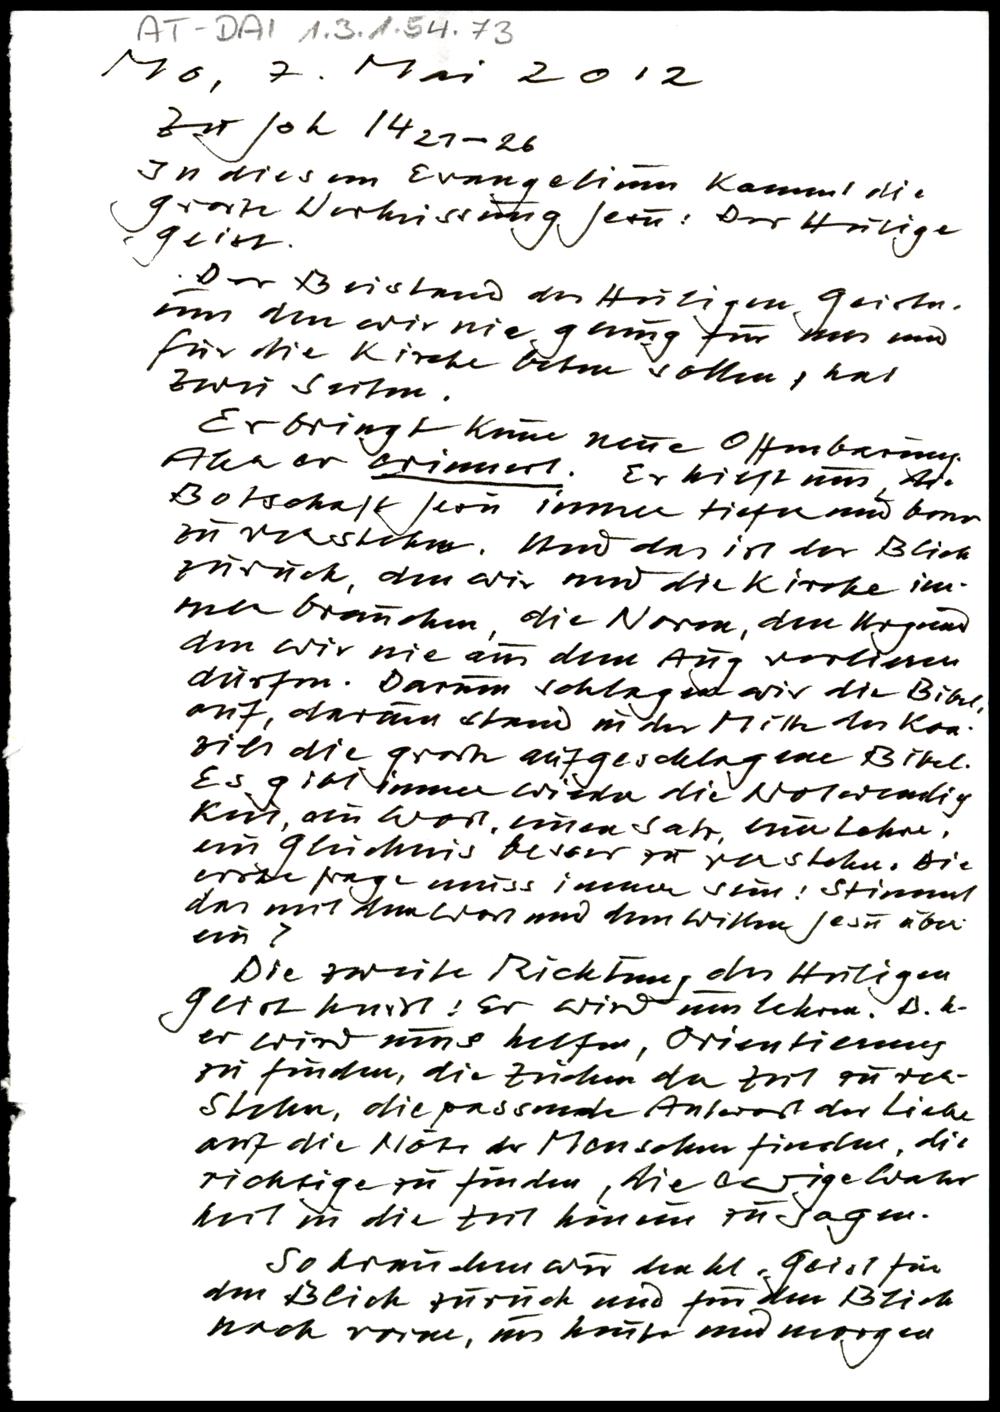 AT-DAI 1.3.1.54.73
Mo, 7. Mai 2012
Zu Joh 14 21-26
In diesem Evangelium kommt die
große Verheissung Jesu: Der Heilige
Geist.
Der Beistand des Heiligen Geistes.
um den wir nie genug für uns und
für die Kirche beten sollen, hat
zwei Seiten.
Er bringt keine neue Offenbarung.
Aber er erinnert. Er hilft uns, die
Botschaft Jesu immer tiefer und besser
zu verstehen. Und das ist der Blick
zurück, den wir und die Kirche im-
mer brauchen, die Norm, den Urgrund
den wir nie aus dem Aug verlieren
dürfen. Darum schlagen wir die Bibel
auf, darum stand in der Mitte des Kon-
zils die große aufgeschlagene Bibel.
Es gibt immer wieder die Notwendig
keit, ein Wort, einen Satz, eine Lehre,
ein Gleichnis besser zu verstehen. Die
erste Frage muss immer sein: Stimmt
das mit dem Wort und dem Willen Jesu über
ein?
Die zweite Richtung des Heiligen
Geist heisst: Er wird uns lehren. D.h.
er wird uns helfen, Orientierung
zu finden, die Zeichen der Zeit zu ver-
stehen, die passende Antwort der Liebe
auf die Nöte der Menschen finden, die
richtige zu finden, die ewige Wahr
heit in die Zeit hinein zu sagen.
So brauchen wir den hl. Geist für
den Blick zurück und für den Blick
nach vorne, ins heute und morgen